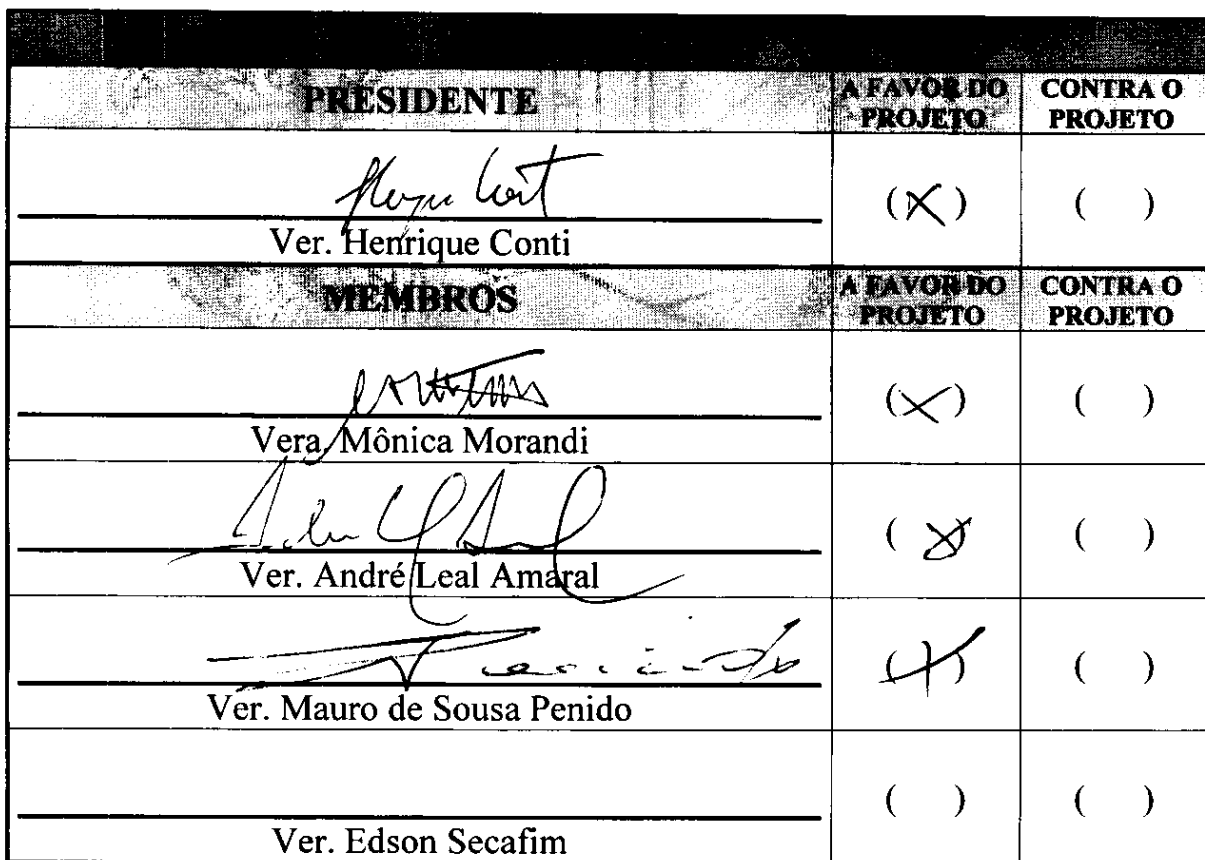 PRESIDENTE
A FAVOR DO PROJETO
CONTRA O PROJETO
(X) ( )
Ver. Henrique Conti
MEMBROS
A FAVOR DO PROJETO
CONTRA O PROJETO
(X) ( )
Vera. Mônica Morandi
(X) ( )
Ver. André Leal Amaral
(X) ( )
Ver. Mauro de Sousa Penido
( ) ( )
Ver. Edson Secafim